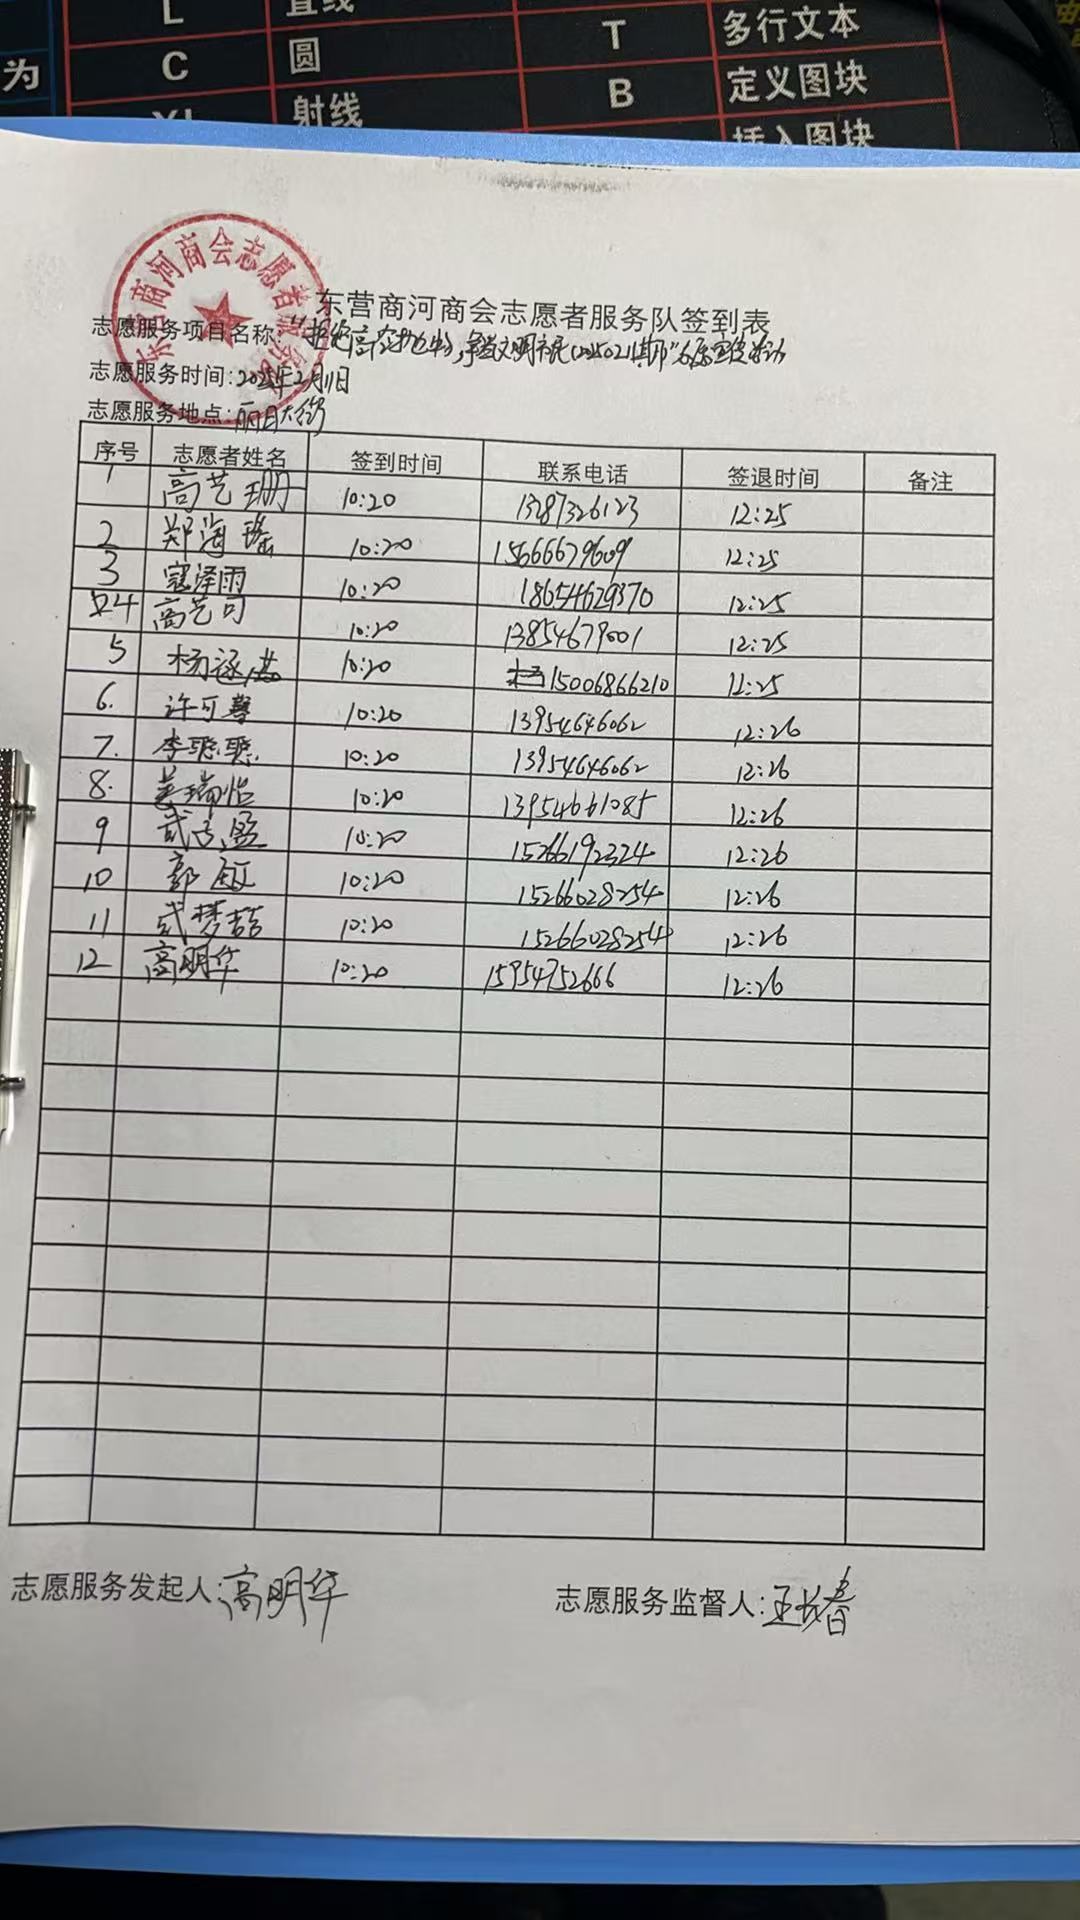 L 直线
C 圆 T 多行文本
为 射线 B 定义图块
插入图块
东营商河商会志愿者服务队
东营商河商会志愿者服务队签到表
志愿服务项目名称:"拒绝高空抛物,争当文明市民(20250211期)"志愿宣传活动
志愿服务时间:2025年2月11日
志愿服务地点:丽日大街
序号 志愿者姓名 签到时间 联系电话 签退时间 备注
1 高艺珊 10:20 1387326123 12:25
2 郑海瑶 10:20 15666679609 12:25
3 寇泽雨 10:20 18654629370 12:25
4 高艺可 10:20 13854679001 12:25
5 杨 10:20 15006866210 12:25
6. 许可馨 10:20 13954646062 12:26
7. 李聪聪 10:20 13954646062 12:26
8. 姜瑞怡 10:20 13954661085 12:26
9 武 盈 10:20 15266192324 12:26
10 郭 10:20 15266028254 12:26
11 武梦喆 10:20 15266028254 12:26
12 高明华 10:20 15954752666 12:26
志愿服务发起人:高明华 志愿服务监督人:王长春